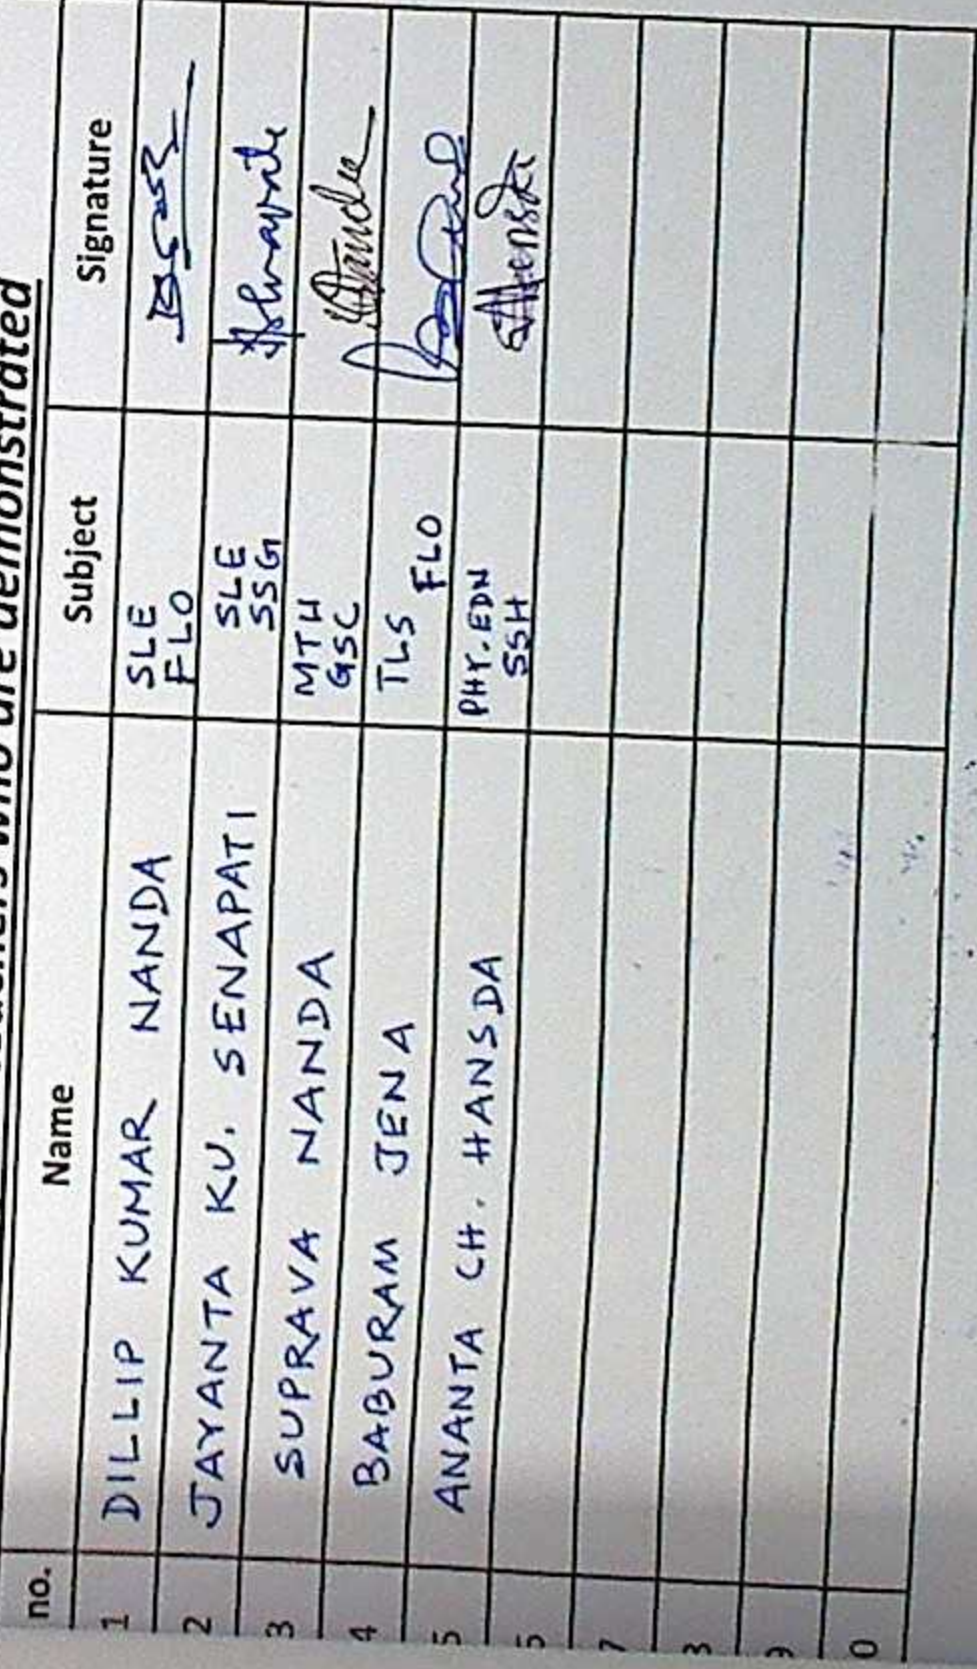 who are demonstrated
no. Name Subject Signature
1 DILLIP KUMAR NANDA SLE
FLO
2 JAYANTA KU. SENAPATI SLE
SSG
3 SUPRAVA NANDA MTH
GSC
4 BABURAM JENA TLS
FLO
5 ANANTA CH. HANSDA PHY. EDN
SSH
7
9
0